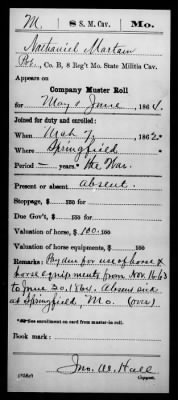 M. | 8 S. M. Cav. | Mo.
Nathaniel Martain
Pvt., Co. B, 8 Reg't Mo. State Militia Cav.
Appears on
Company Muster Roll
for May & June, 1864.
Joined for duty and enrolled:
When Mch 7, 1862*
Where Springfield
Period years. the War.
Present or absent, absent.
Stoppage, $ 100 for
Due Gov't, $ 100
Valuation of horse, $ 100. 100
Valuation of horse equipments, $ 100
Remarks: Pay due for use of horse &
horse equipments from Nov. 1863
to June 30, 1864. Absent sick
at Springfield, Mo. (over)
*See enrollment on card from muster-in roll.
Book mark:
Jno. W. Hall
Copyist.